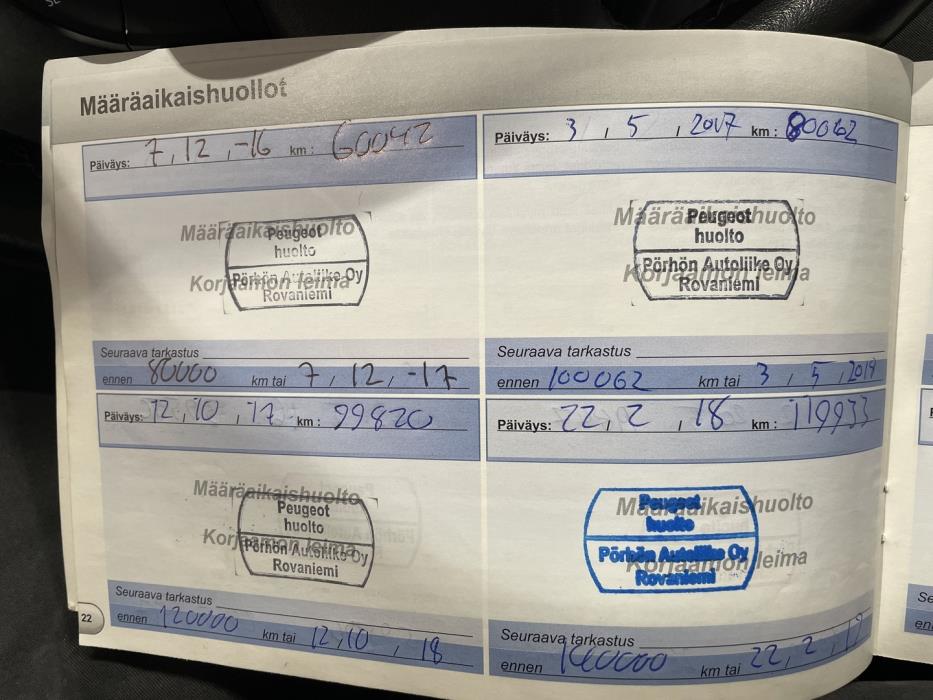 Määräaikaishuollot
Päiväys: 7, 12, -16 km: 60042
Määräaikaishuolto
Peugeot
huolto
Korjaamon leima
Pörhön Autoliike Oy
Rovaniemi
Seuraava tarkastus
ennen 80000 km tai 7, 12, -17
Päiväys: 3, 5, 2017 km: 80062
Määräaikaishuolto
Peugeot
huolto
Korjaamon leima
Pörhön Autoliike Oy
Rovaniemi
Seuraava tarkastus
ennen 100062 km tai 3, 5, 2019
Päiväys: 12, 10, 17 km: 99820
Määräaikaishuolto
Peugeot
huolto
Korjaamon leima
Pörhön Autoliike Oy
Rovaniemi
Seuraava tarkastus
ennen 120000 km tai 12, 10, 18
Päiväys: 22, 2, 18 km: 119933
Määräaikaishuolto
Peugeot
huolto
Korjaamon leima
Pörhön Autoliike Oy
Rovaniemi
Seuraava tarkastus
ennen 140000 km tai 22, 2, 19
22
Se
en